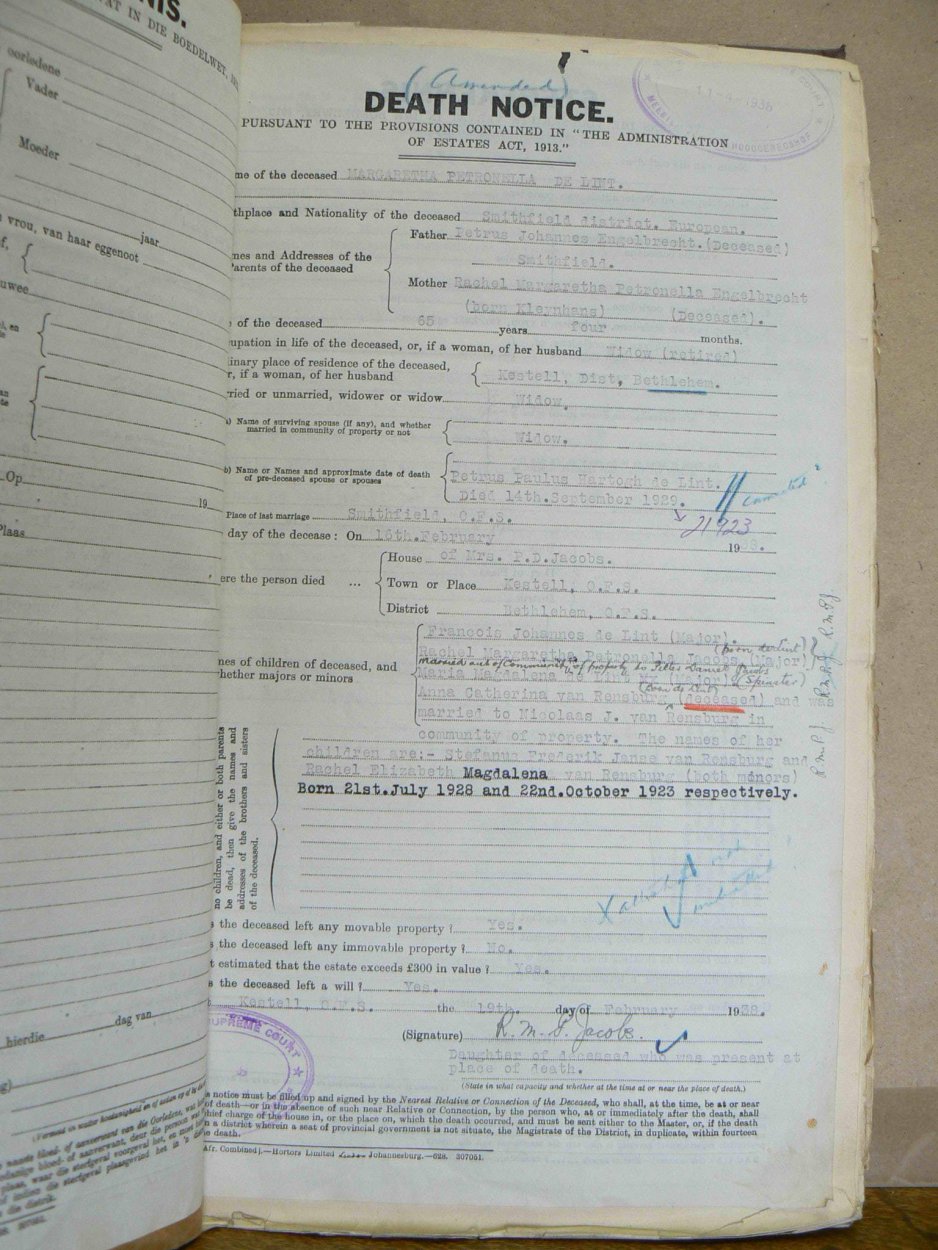 NIS.
AT IN DIE BOEDELWET,
oorledene
Vader
Moeder
jaar
vrou, van haar eggenoot
Op
19
Plaas
hierdie
dag van
(Amended)
DEATH NOTICE.
PURSUANT TO THE PROVISIONS CONTAINED IN "THE ADMINISTRATION
OF ESTATES ACT, 1913."
me of the deceased MARGARETHA PETRONELLA DE LINT.
thplace and Nationality of the deceased Smithfield district. European.
nes and Addresses of the
arents of the deceased
Father Petrus Johannes Engelbrecht. (Deceased)
Smithfield.
Mother Rachel Margaretha Petronella Engelbrecht
(born Kleynhans) (Deceased).
of the deceased 65 years four months.
upation in life of the deceased, or, if a woman, of her husband Widow (retired)
inary place of residence of the deceased,
r, if a woman, of her husband
Kestell, Dist, Bethlehem.
rried or unmarried, widower or widow Widow.
a) Name of surviving spouse (if any), and whether
married in community of property or not
Widow.
b) Name or Names and approximate date of death
of pre-deceased spouse or spouses
Petrus Paulus Hartogh de Lint.
Died 14th.September 1929.
21923
Place of last marriage Smithfield, O.F.S.
day of the decease: On 16th.February 19
ere the person died ...
House of Mrs. P.D.Jacobs.
Town or Place Kestell, O.F.S.
District Bethlehem, O.F.S.
nes of children of deceased, and
hether majors or minors
Francois Johannes de Lint (Major).
(born de Lint)
Rachel Margaretha Petronella Jacobs (Major)
married out of Community of property to Petrus Daniel Jacobs
Maria Magdalena de Lint (Major) (Spinster)
(born de Lint)
Anna Catherina van Rensburg (deceased) and was
married to Nicolaas J. van Rensburg in
community of property. The names of her
children are:- Stefanus Frederik Janse van Rensburg and
Rachel Elizabeth Magdalena van Rensburg (both minors)
Born 21st.July 1928 and 22nd.October 1923 respectively.
R.M.P.J
no children, and either or both parents
be dead, then give the names and
addresses of the brothers and sisters
of the deceased.
s the deceased left any movable property? Yes.
s the deceased left any immovable property? No.
t estimated that the estate exceeds £300 in value? Yes.
s the deceased left a will? Yes.
Kestell, O.F.S. the 19th. day of February 1938.
(Signature) R. M. P. Jacobs.
Daughter of deceased who was present at
place of death.
(State in what capacity and whether at the time at or near the place of death.)
SUPREME COURT
notice must be filled up and signed by the Nearest Relative or Connection of the Deceased, who shall, at the time, be at or near
of death—or in the absence of such near Relative or Connection, by the person who, at or immediately after the death, shall
chief charge of the house in, or the place on, which the death occurred, and must be sent either to the Master, or, if the death
n a district wherein a seat of provincial government is not situate, the Magistrate of the District, in duplicate, within fourteen
e death.
Afr. Combined].—Hortors Limited Johannesburg.—628. 307051.